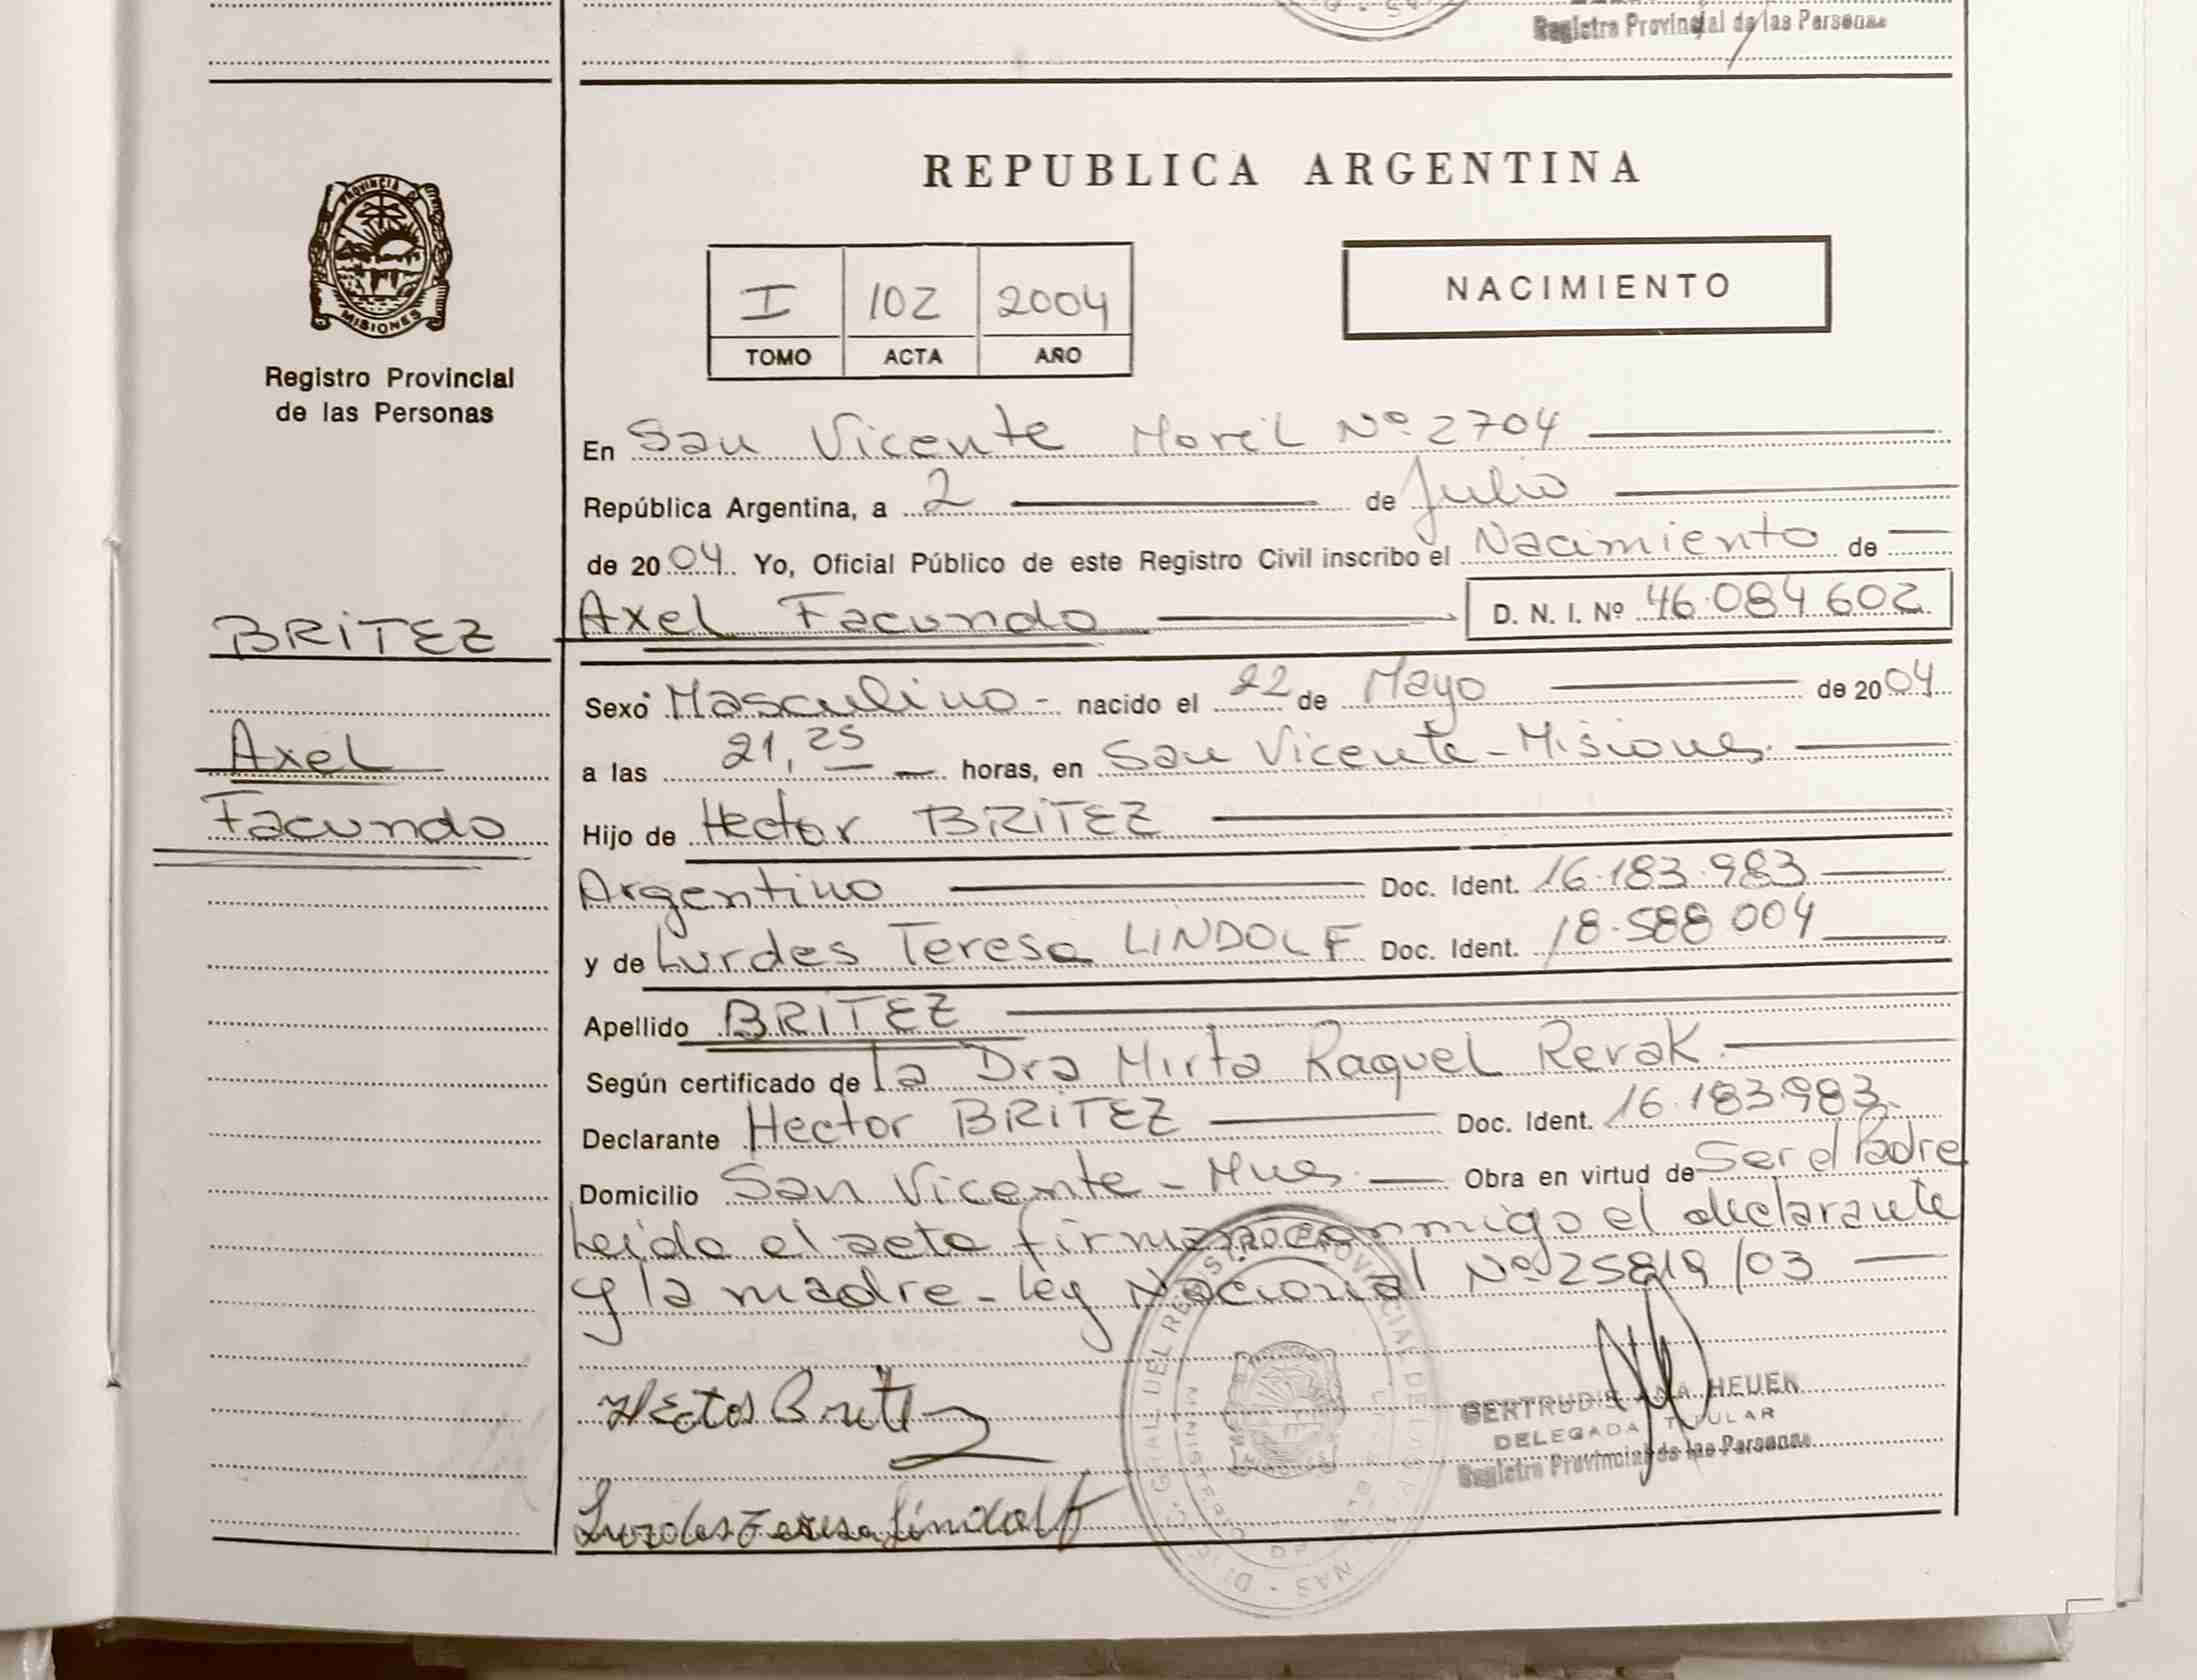 Registro Provincial de las Personas
REPUBLICA ARGENTINA
PROVINCIA DE
MISIONES
Registro Provincial
de las Personas
I 102 2004
TOMO ACTA AÑO
NACIMIENTO
En San Vicente Movil Nº 2704
República Argentina, a 2 de Julio
de 2004 Yo, Oficial Público de este Registro Civil inscribo el Nacimiento de
BRITEZ
Axel
Facundo
Axel Facundo D. N. I. Nº 46.084.602
Sexo Masculino - nacido el 22 de Mayo de 2004
a las 21,25 horas, en San Vicente - Misiones.
Hijo de Hector BRITEZ
Argentino Doc. Ident. 16.183.983
y de Lurdes Teresa LINDOLF Doc. Ident. 18.588.004
Apellido BRITEZ
Según certificado de la Dra Mirta Raquel Revak.
Declarante Hector BRITEZ Doc. Ident. 16.183.983.
Domicilio San Vicente - Mnes. Obra en virtud de Ser el Padre
Leida el acta firman conmigo el declarante
y la madre - Ley Nacional Nº 25819/03
Hector Britez
GERTRUDIS ANA HEUER
DELEGADA TITULAR
Registro Provincial de las Personas
Lurdes Teresa Lindolf